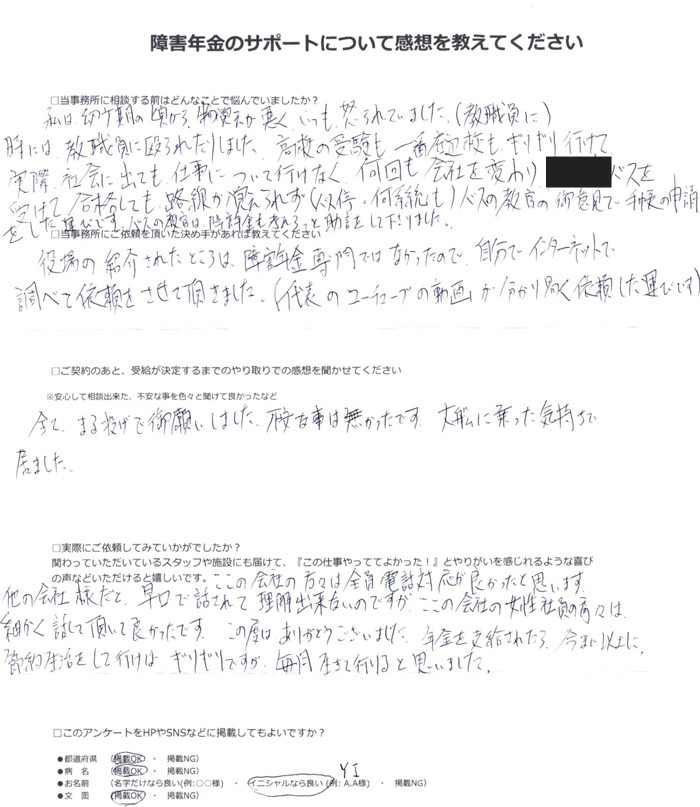 障害年金のサポートについて感想を教えてください
□当事務所に相談する前はどんなことで悩んでいましたか?
私は幼少期の頃から、物覚えが悪く いつも、怒られていました。(教職員に)
時には、教職員に殴られたりしました、高校の受験も 一番底辺校も、ギリギリ行けて
実際、社会に出ても 仕事に ついて行けなく 何回も 会社を変わり バスを
受けて 合格しても、路線が覚えられず(バス停・何系統も)バスの教官の 御意見で 手帳の申請
をした運びです。バスの教官は、障害年金も考えろっと助言をして下りました。
□当事務所にご依頼を頂いた決め手があれば教えてください
役場の 紹介されたところは、障害年金専門では なかったので、自分で インターネットで
調べて 依頼を させて 頂きました、(代表の ユーチューブの動画」が分かり易く 依頼した運びです)
□ご契約のあと、受給が決定するまでのやり取りでの感想を聞かせてください
※安心して相談出来た、不安な事を色々と聞けて良かったなど
全て、まる投げで 御願いしました、不安な事は無かったです 大船に 乗った気持ちで
居ました、
□実際にご依頼してみていかがでしたか?
関わっていただいているスタッフや施設にも届けて、『この仕事やっててよかった!』とやりがいを感じれるような喜び
の声などいただけると嬉しいです。ここの会社の方々は全員電話対応が良かったと思います
他の会社 様だと、早口で話されて 理解出来ないのですが、ここの会社の女性社員の方々は、
細かく 話して 頂いて 良かったです この度は ありがとうございました、年金を支給されたら、今まで以上に、
節約生活をして行けば ギリギリですが、毎月 生きて行けると 思いました。
□このアンケートをHPやSNSなどに掲載してもよいですか?
●都道府県 (掲載OK ・ 掲載NG)
●病 名 (掲載OK ・ 掲載NG)
YI
●お名前 (名字だけなら良い(例:○○様) ・ イニシャルなら良い(例:A.A様) ・ 掲載NG)
●文 面 (掲載OK ・ 掲載NG)